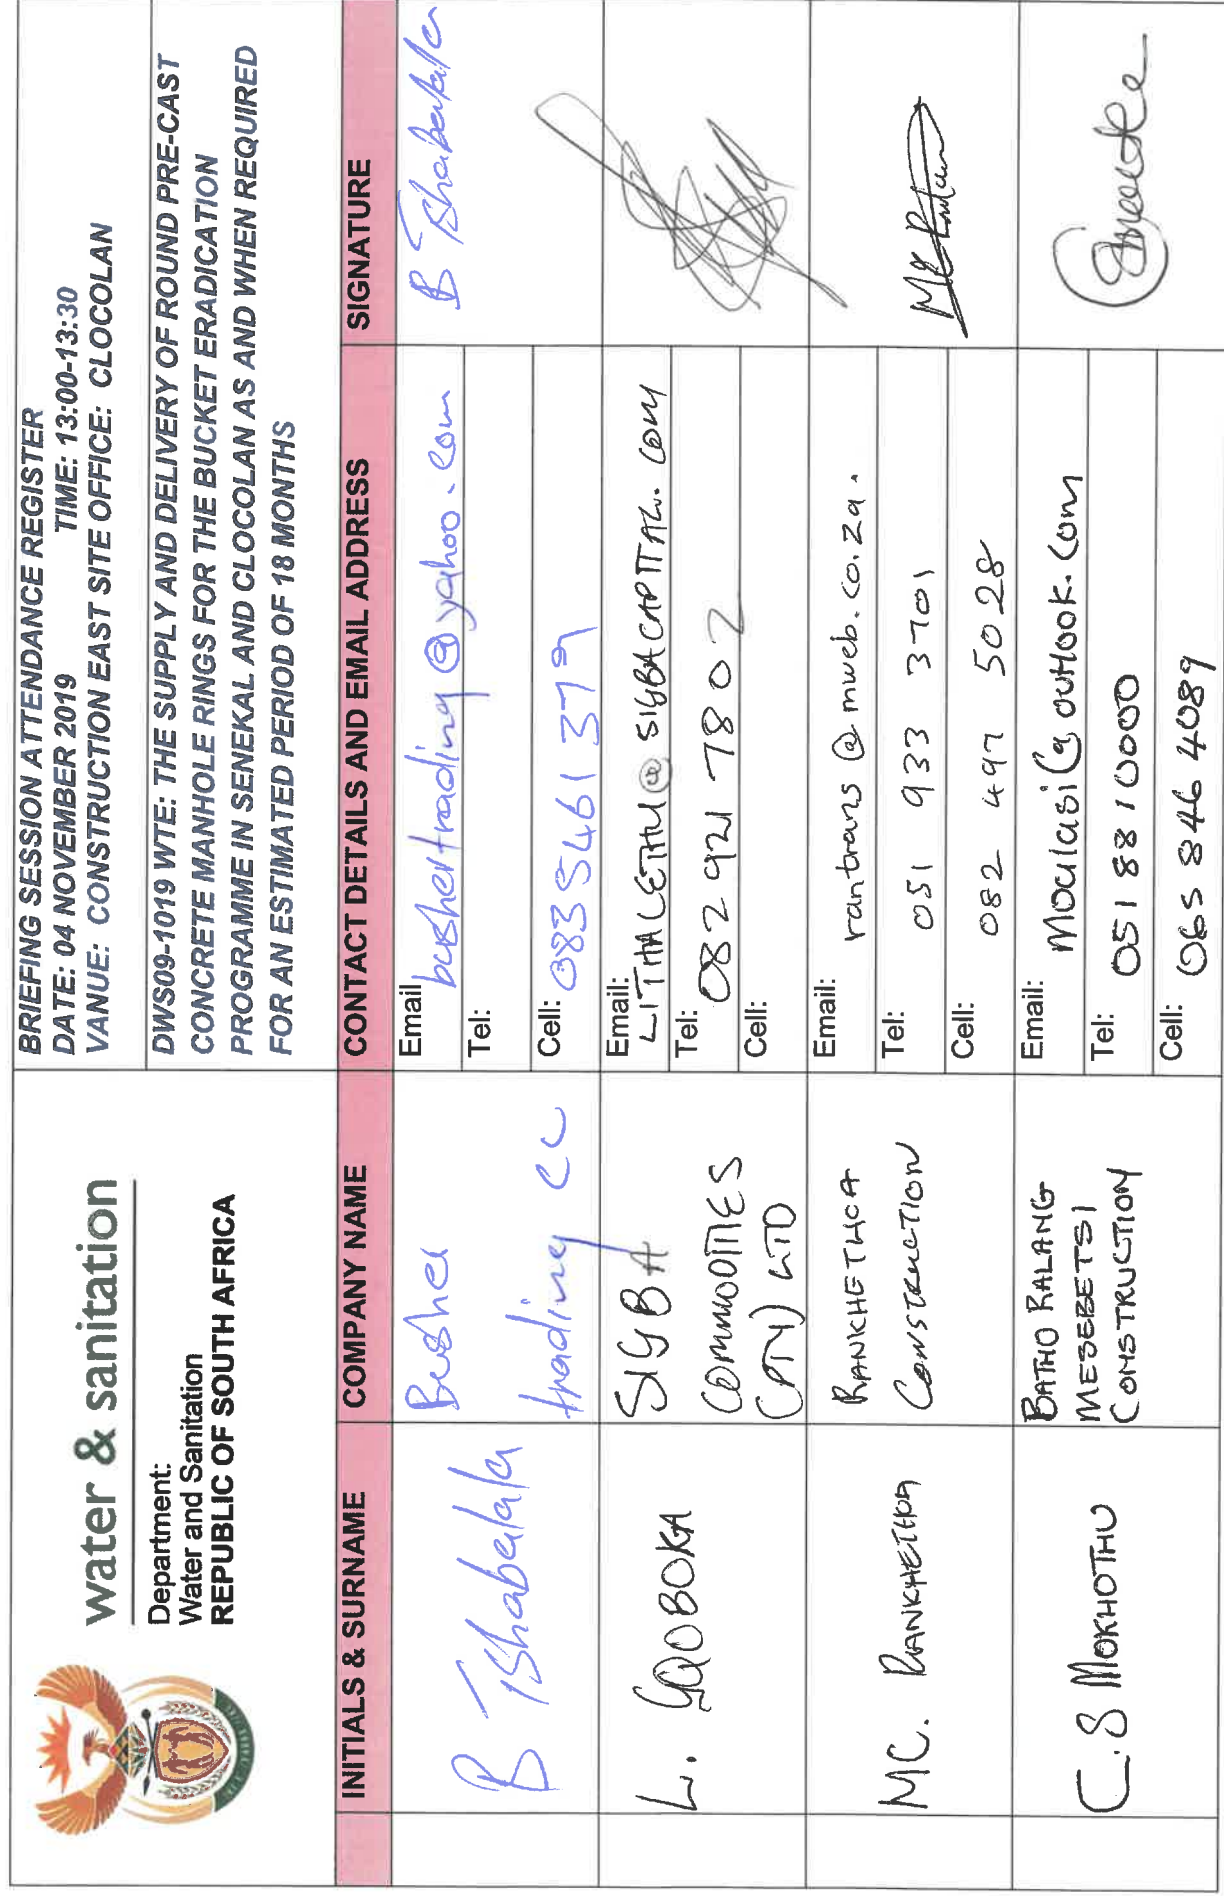 water & sanitation
Department:
Water and Sanitation
REPUBLIC OF SOUTH AFRICA
BRIEFING SESSION ATTENDANCE REGISTER
DATE: 04 NOVEMBER 2019 TIME: 13:00-13:30
VANUE: CONSTRUCTION EAST SITE OFFICE: CLOCOLAN
DWS09-1019 WTE: THE SUPPLY AND DELIVERY OF ROUND PRE-CAST
CONCRETE MANHOLE RINGS FOR THE BUCKET ERADICATION
PROGRAMME IN SENEKAL AND CLOCOLAN AS AND WHEN REQUIRED
FOR AN ESTIMATED PERIOD OF 18 MONTHS
INITIALS & SURNAME COMPANY NAME CONTACT DETAILS AND EMAIL ADDRESS SIGNATURE
B Tshabalala
Busher
trading cc
Email bushertrading@yahoo.com
Tel:
Cell: 0835461379
B Tshabalala
L. GQOBOKA
SIGBA
COMMODITIES
(PTY) LTD
Email:
LITHALETHU@SIGBACAPITAL.COM
Tel: 082 921 7802
Cell:
MC. RANKHETHOA
RANKHETHOA
CONSTRUCTION
Email: rantrans@mweb.co.za.
Tel: 051 933 3701
Cell: 082 497 5028
C.S MOKHOTHU
BATHO RALANG
MESEBETSI
CONSTRUCTION
Email: Moulasi@outlook.com
Tel: 051 8810000
Cell: 065 846 4089